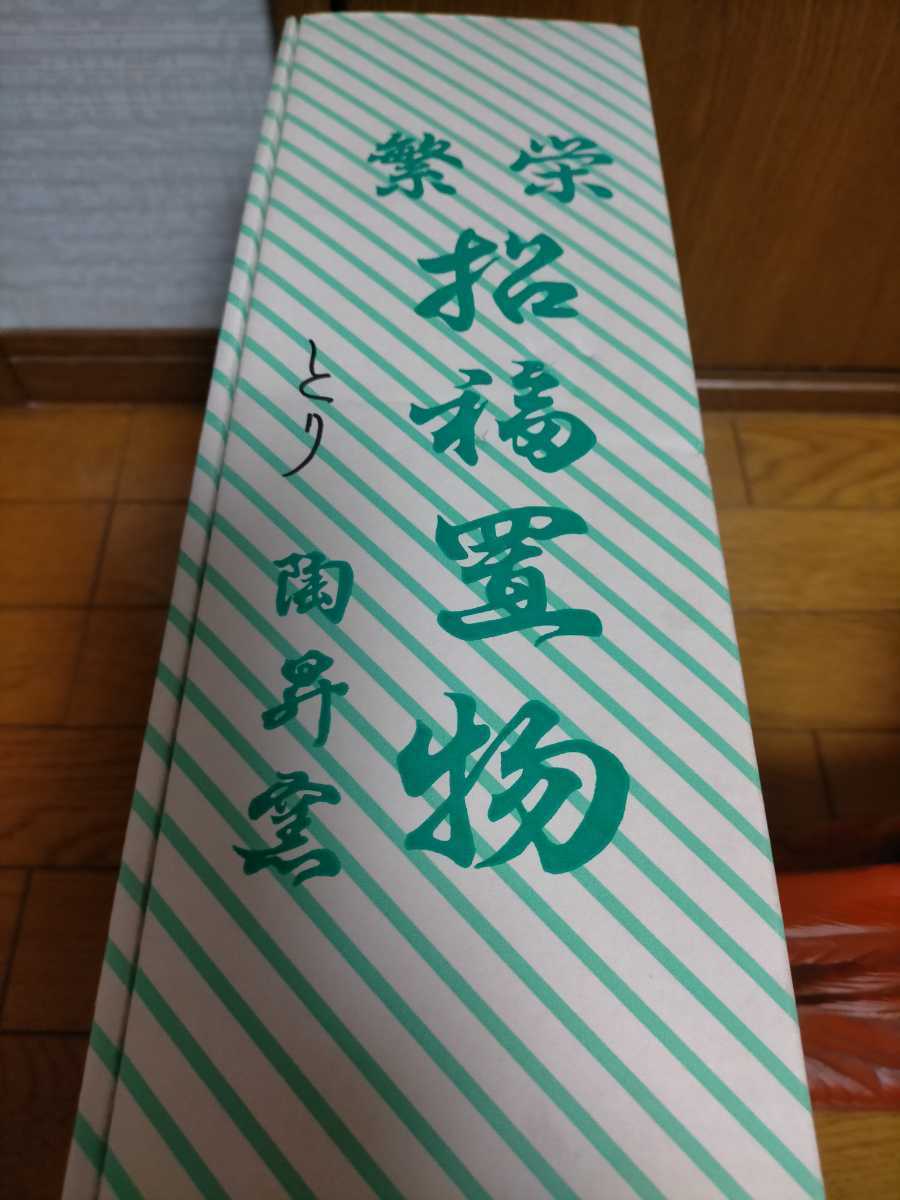 繁栄
招福置物
とり
陶昇窯